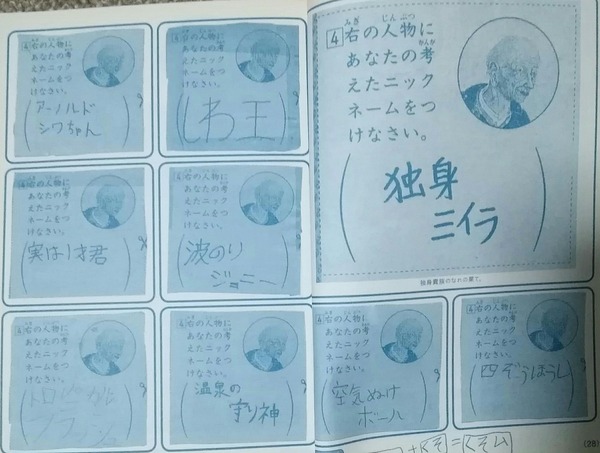 4 右の人物に
あなたの考
えたニック
ネームをつ
けなさい。
アーノルド
シワちゃん
4 右の人物に
あなたの考
えたニック
ネームをつ
けなさい。
しわ王
みぎ じん ぶつ
4 右の人物に
かんが
あなたの考
えたニック
ネームをつ
けなさい。
独身
ミイラ
独身貴族のなれの果て。
4 右の人物に
あなたの考
えたニック
ネームをつ
けなさい。
実は1才君
4 右の人物に
あなたの考
えたニック
ネームをつ
けなさい。
波のり
ジョニー
4 右の人物に
あなたの考
えたニック
ネームをつ
けなさい。
トロピカル
4 右の人物に
あなたの考
えたニック
ネームをつ
けなさい。
温泉の
守り神
4 右の人物に
あなたの考
えたニック
ネームをつ
けなさい。
空気ぬけ
ボール
4 右の人物に
あなたの考
えたニック
ネームをつ
けなさい。
(28)